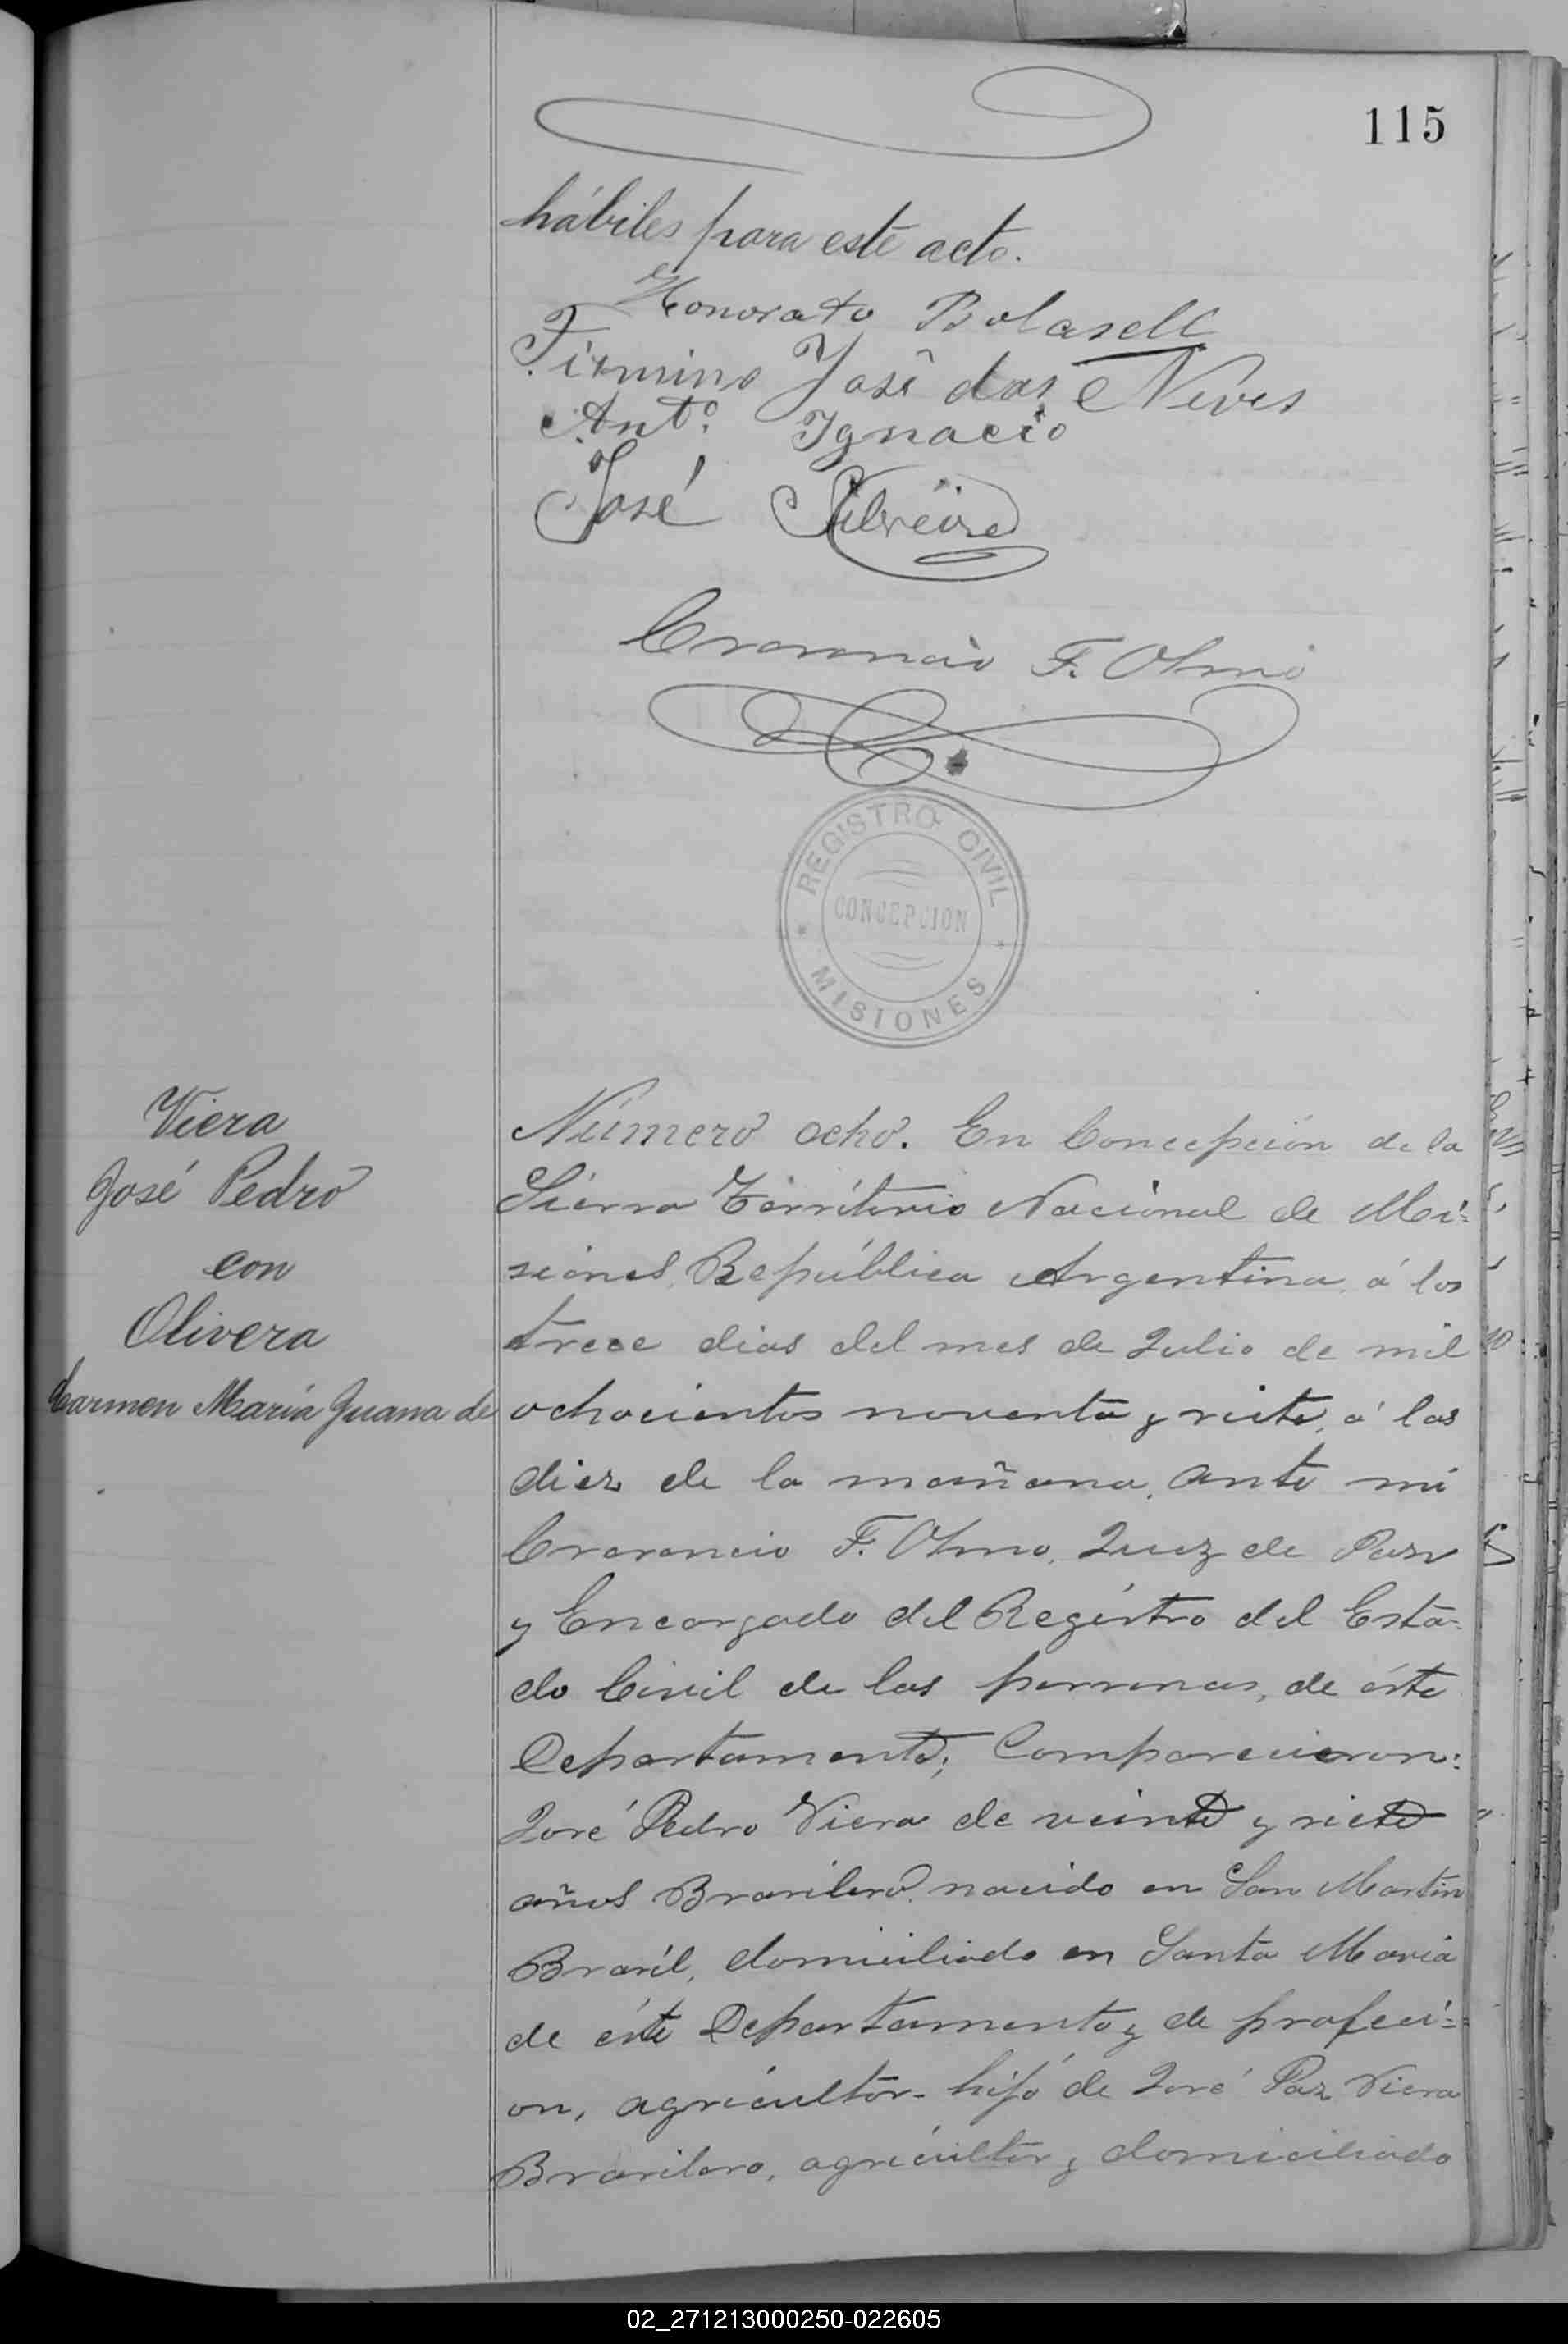 115
hábiles para este acto.
Honorato Bolasell
Firmino José das Neves
Anto. Ignacio
José Silveira
F. Olmo
REGISTRO CIVIL
CONCEPCION
MISIONES
Viera
José Pedro
con
Olivera
Carmen María Juana de
Número ocho. En Concepción de la
Sierra Território Nacional de Mi=
siones, República Argentina, á los
trece dias del mes de Julio de mil
ochocientos noventa y siete, á las
diez de la mañana, ante mi
F. Olmo, Juez de Paz
y Encargado del Registro del Esta-
do Civil de las personas, de éste
Departamento; Comparecieron:
José Pedro Viera de veinte y siete
años Brasilero, nacido en San Martin
Brasíl, domiciliado en Santa Maria
de éste Departamento y de profeci=
on, agricultor- hijo de José Paz Viera
Brasilero, agricultor y domiciliado
02_271213000250-022605